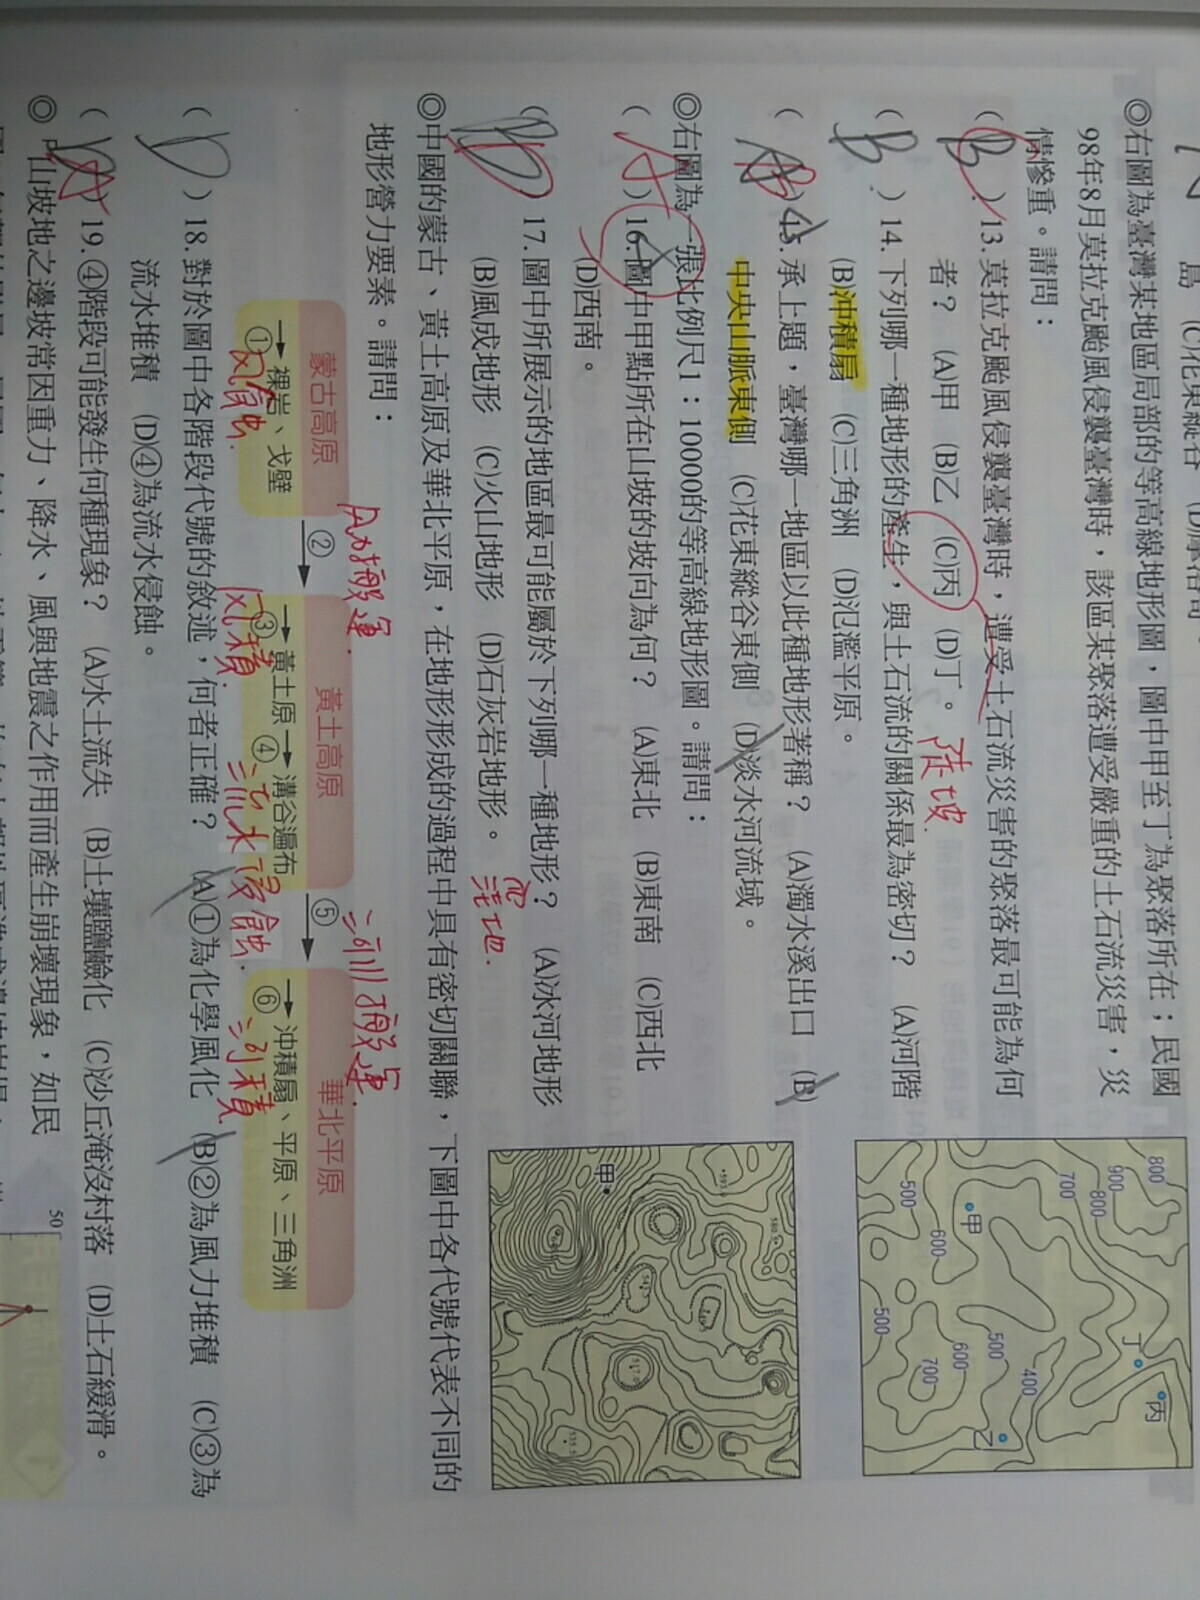 島 (C)花東縱谷
◎右圖為臺灣某地區局部的等高線地形圖，圖中甲至丁為聚落所在；民國
98年8月莫拉克颱風侵襲臺灣時，該區某聚落遭受嚴重的土石流災害，災
情慘重。請問：
(B)13.莫拉克颱風侵襲臺灣時，遭受土石流災害的聚落最可能為何
者？ (A)甲 (B)乙 (C)丙 (D)丁。 陡坡
(B)14.下列哪一種地形的產生，與土石流的關係最為密切？ (A)河階
(B)沖積扇 (C)三角洲 (D)氾濫平原。
( )15.承上題，臺灣哪一地區以此種地形著稱？ (A)濁水溪出口 (B)
中央山脈東側 (C)花東縱谷東側 (D)淡水河流域。
◎右圖為一張比例尺1：10000的等高線地形圖。請問：
( )16.圖中甲點所在山坡的坡向為何？ (A)東北 (B)東南 (C)西北
(D)西南。
( )17.圖中所展示的地區最可能屬於下列哪一種地形？ (A)冰河地形
(B)風成地形 (C)火山地形 (D)石灰岩地形。 窪地
◎中國的蒙古、黃土高原及華北平原，在地形形成的過程中具有密切關聯，下圖中各代號代表不同的
地形營力要素。請問：
風搬運 河川搬運
蒙古高原 ② 黃土高原 ⑤ 華北平原
①→裸岩、戈壁 ③→黃土原 ④→溝谷遍布 ⑥→沖積扇、平原、三角洲
風蝕 風積 流水侵蝕 河積
(D)18.對於圖中各階段代號的敘述，何者正確？ (A)①為化學風化 (B)②為風力堆積 (C)③為
流水堆積 (D)④為流水侵蝕。
(A)19.④階段可能發生何種現象？ (A)水土流失 (B)土壤鹽鹼化 (C)沙丘淹沒村落 (D)土石緩滑。
◎山坡地之邊坡常因重力、降水、風與地震之作用而產生崩壞現象，如民
800
900
800
700
500
甲
600
丁
丙
500
400
600
700
500
乙
甲
50